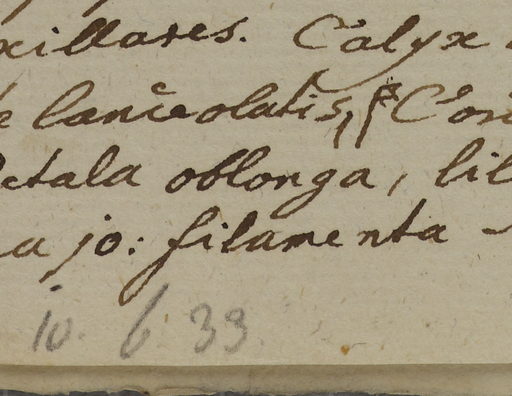 xillares. Calyx
lanceolatis, Cor
Petala oblonga, lil
a jo: filamenta
10. 6 39